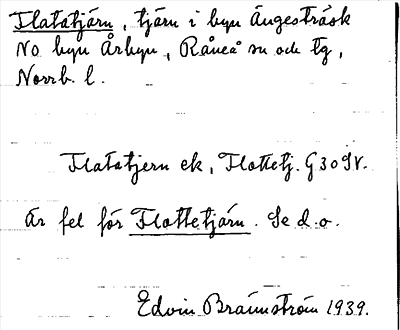 Flatatjärn, tjärn i byn Ängesträsk
No byn Årbyn, Råneå sn och tg,
Norrb. l.
Flatatjern ek, Flottetj. G 30 SV.
Är fel för Flottetjärn. Se d. o.
Edvin Brännström 1939.